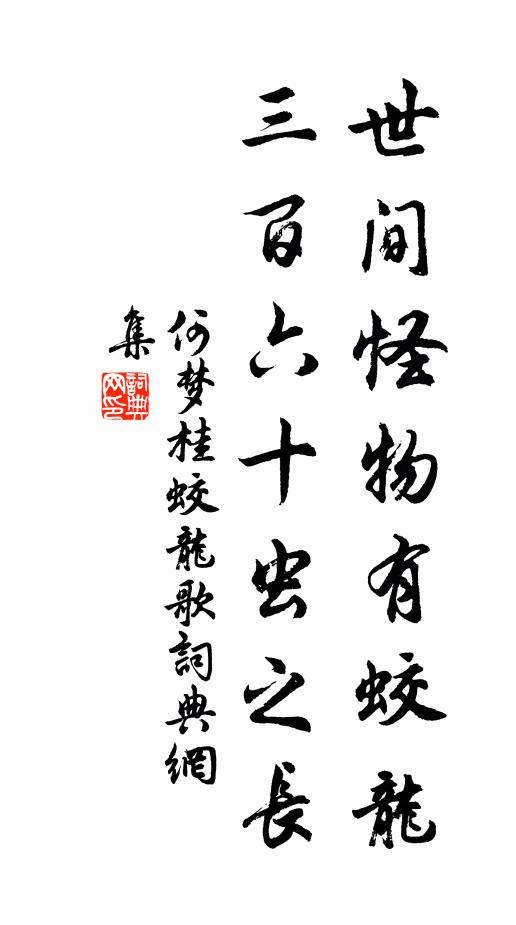 世间怪物有蛟龍
三百六十虫之長
何梦桂蛟龍歌詞典網
集
詞典网印